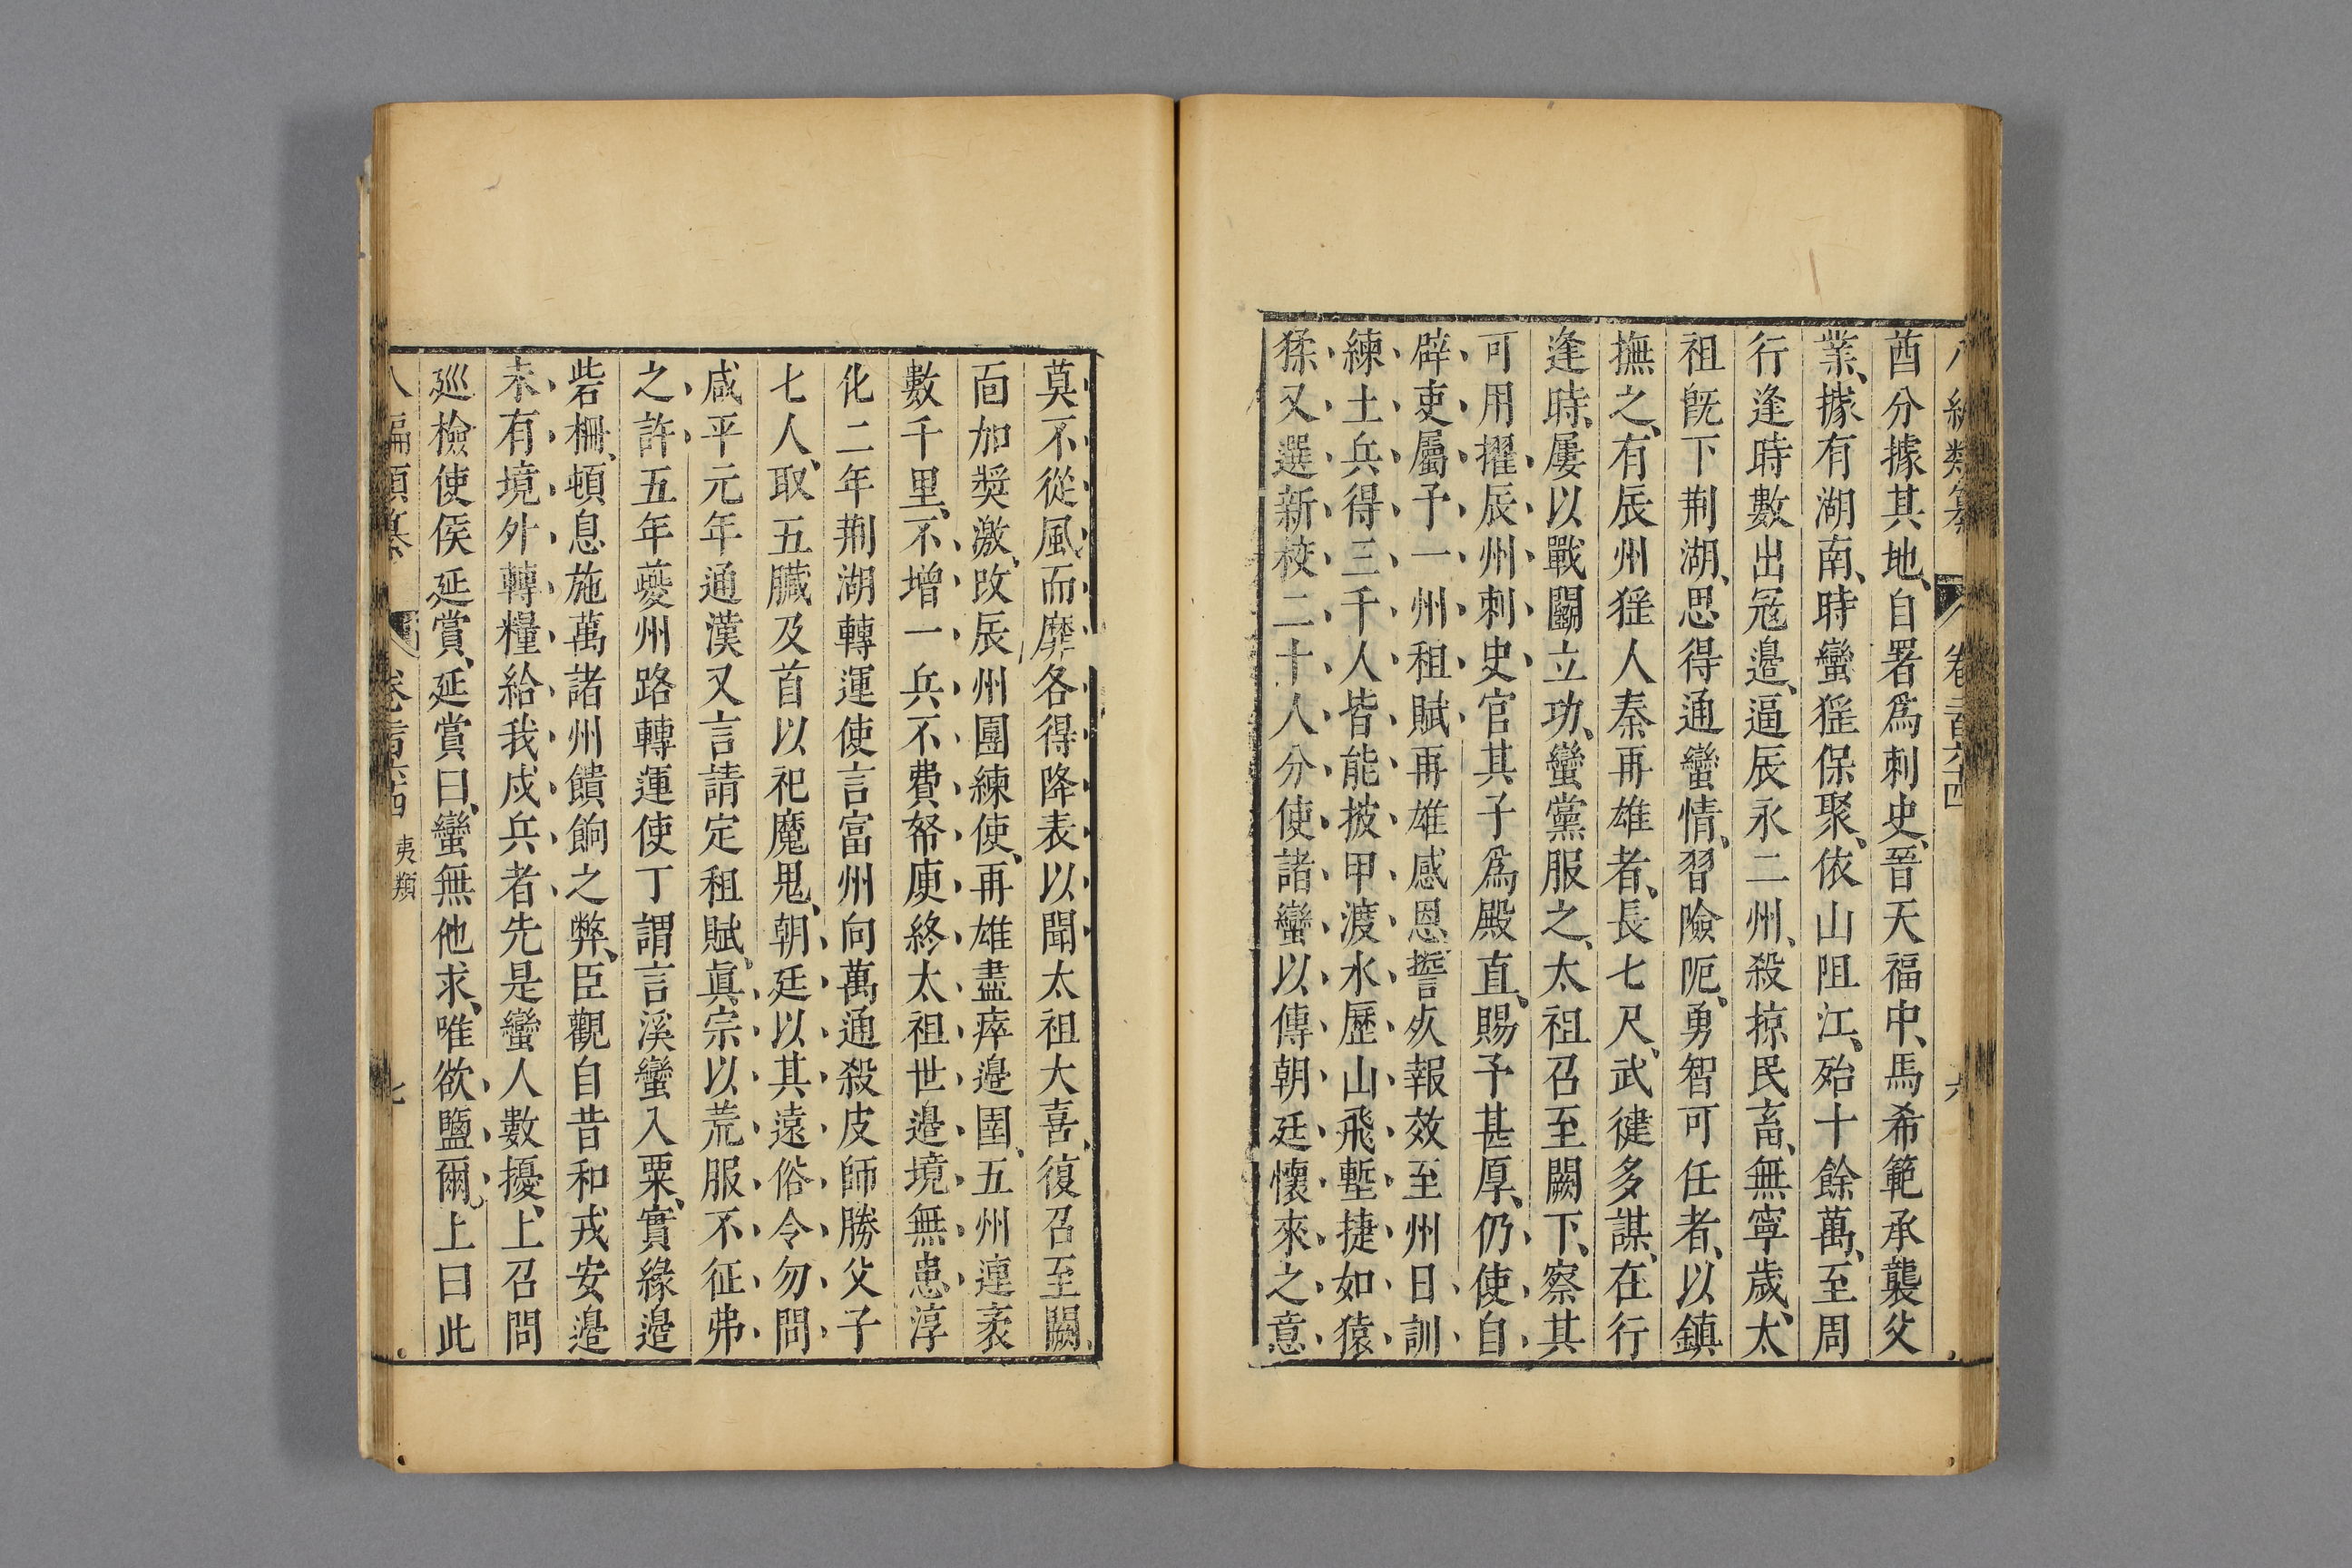 八編類纂 卷二百六十四 六
酋分據其地、自署爲刺史、晉天福中、馬希範承襲父
業、據有湖南、時蠻猺保聚、依山阻江、殆十餘萬、至周
行逢時數出寇邉、逼辰永二州、殺掠民畜、無寧歲、太
祖旣下荆湖、思得通蠻情、習險阨、勇智可任者、以鎮
撫之、有辰州猺人秦再雄者、長七尺、武健多謀、在行
逢時、屢以戰鬬立功、蠻黨服之、太祖召至闕下、察其
可用擢辰州刺史官其子爲殿直、賜予甚厚、仍使自
辟吏屬予一州租賦再雄感恩誓死報效至州日訓
練土兵得三千人皆能披甲渡水歷山飛塹捷如猿
猱又選新校二十人分使諸蠻以傳朝廷懷來之意
莫不從風而靡各得降表以聞太祖大喜、復召至闕、
面加奨激、改辰州團練使、再雄盡瘁邉圉、五州連袤
數千里、不增一兵不費帑庾終太祖世邉境無患淳
化二年荆湖轉運使言富州向萬通殺皮師勝父子
七人、取五臓及首以祀魔鬼、朝廷以其遠俗令勿問
咸平元年通漢又言請定租賦、眞宗以荒服不征弗
之許五年夔州路轉運使丁謂言溪蠻入粟、實緣邉
砦柵、頓息施萬諸州饋餉之弊、臣觀自昔和戎安邉
未有境外轉糧給我戍兵者先是蠻人數擾、上召問
廵檢使侯延賞、延賞曰、蠻無他求、唯欲鹽爾、上曰此
八編類纂 卷二百六十四 夷類 七